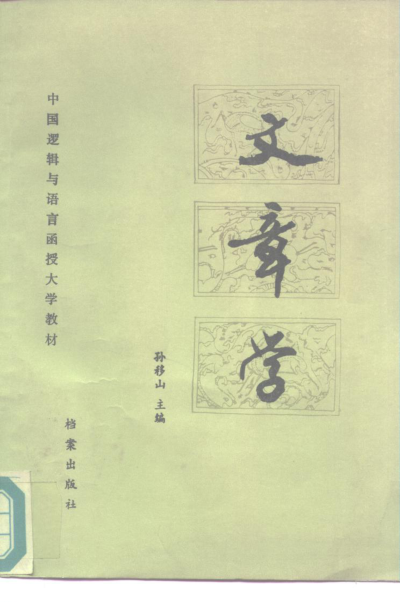 文章学
孙移山 主编
中国逻辑与语言函授大学教材
档案出版社